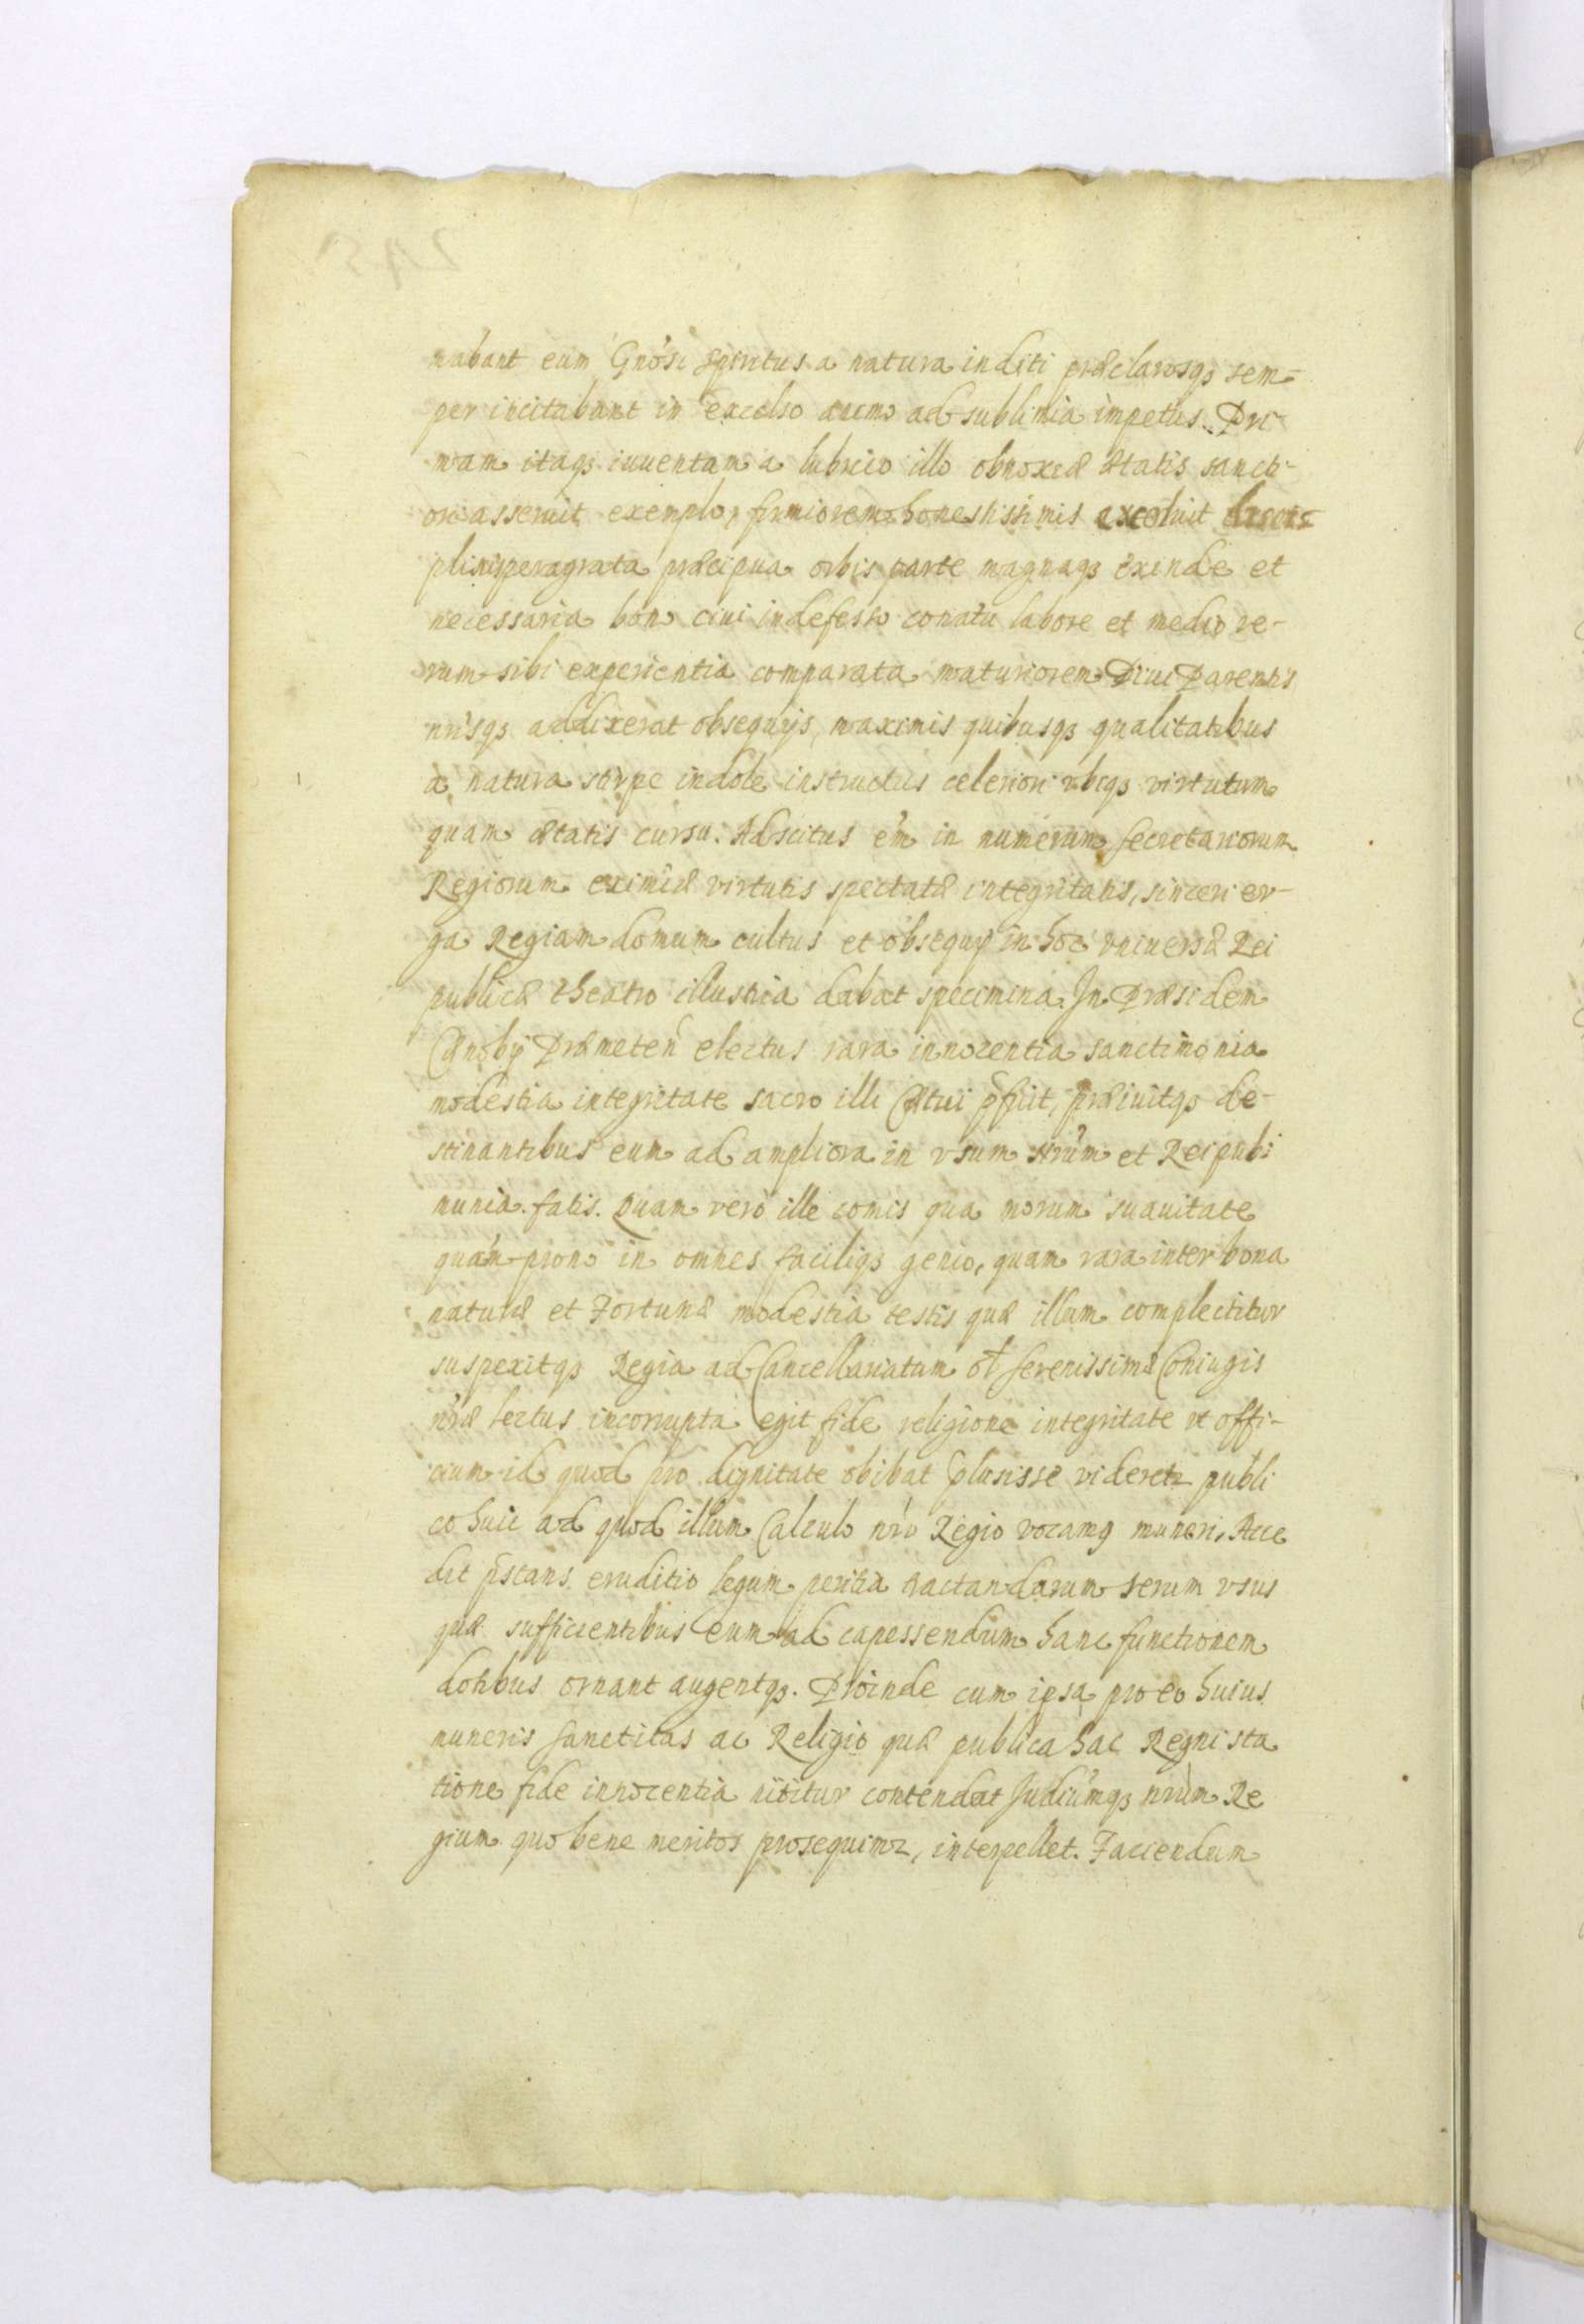 nabant eum Gnosi spiritus a natura inditi præclarosq3 sem-
per incitabant in excelso animo ad sublimia impetus. Pri
mam itaq3 iuuentam a lubrico illo obnoxiæ ætatis sancti-
ori asseruit exemplo, firmiorem honestissimis excoluit disci
plinis peragrata præcipua orbis parte magnaq3 exinde et
necessaria bono ciui indefesso conatu labore et medio re-
rum sibi experientia comparata maturiorem Diui Parentis
nrisq3 addixerat obsequijs, maximis quibusq3 qualitatibus
a natura stirpe indole instructus celeriori vbiq3 virtutum
quam ætatis cursu. Adscitus em in numerum secretariorum
Regiorum eximiæ virtutis spectatæ integritatis, sinceri er-
ga Regiam domum cultus et obsequij in hoc vniuersæ Rei
publicæ theatro illustria dabat specimina. In Præsidem
Cænobij Præmeten electus rara innocentia sanctimonia
modestia integritate sacro illi Cætui pfuit, præiuitq3 de-
stinantibus eum ad ampliora in vsum nrum et Reipubl
munia fatis. Quam vero ille comis qua morum suauitate
quam prono in omnes faciliq3 genio, quam rara inter bona
naturæ et Fortunæ modestia testis quæ illum complectitur
suspexitq3 Regia ad Cancellariatum ol Serenissimæ Coniugis
nræ lectus incorrupta egit fide religione integritate vt offi-
cium id quod pro dignitate obibat plusisse videretr publi
co huic ad quod illum Calculo nro Regio vocamq muneri. Acce
dit pstans eruditio legum peritia tractandarum rerum vsus
quæ sufficientibus eum ad capessendum hanc functionem
dotibus ornant augentq3. Proinde cum ipsa pro eo huius
muneris sanctitas ac Religio quæ publica hac Regni sta
tione fide innocentia nititur contendat Judiciumq3 nrum Re
gium quo bene meritos prosequimr, interpellet. Faciendum